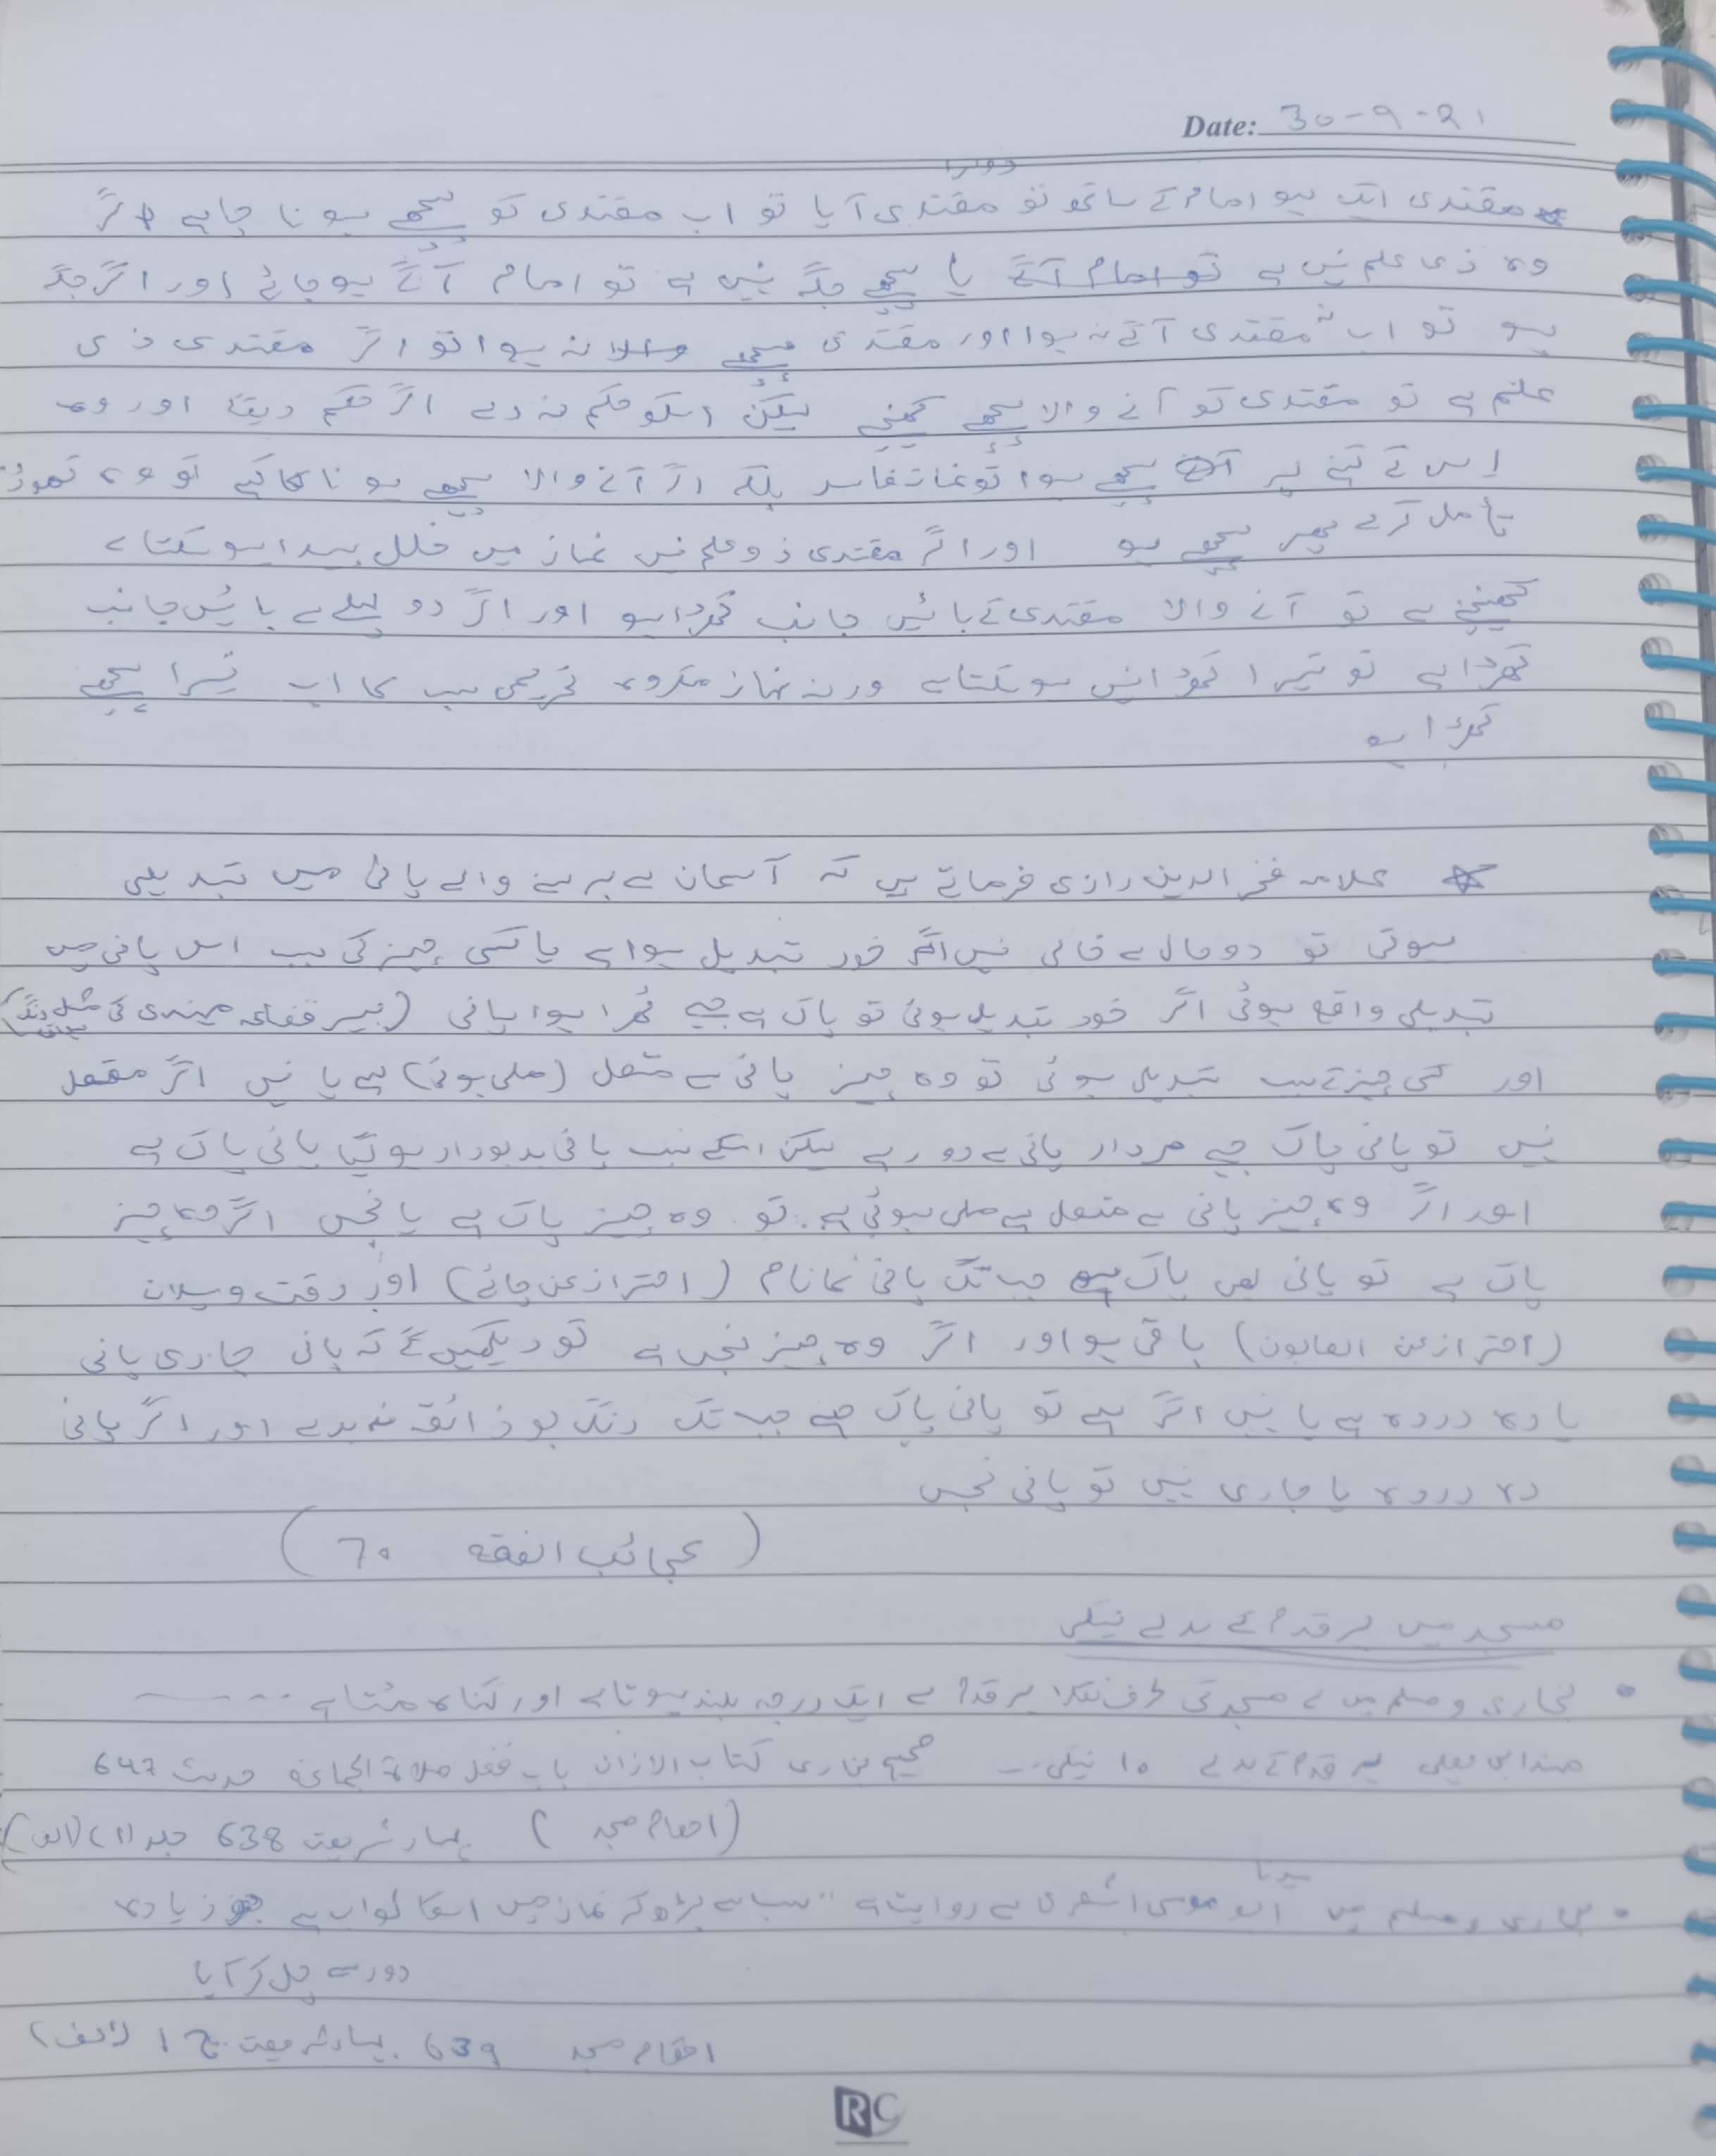 Date: 30-9-21
دوسرا
مقتدی ایک ہو امام کے ساتھ تو مقتدی آیا تو اب مقتدی کو پیچھے ہونا چاہے اگر
وہ ذی علم نہیں ہے تو امام آگے یا پیچھے جگہ نہیں ہے تو امام آگے ہو جائے اور اگر جگہ
ہو تو اب نہ مقتدی آگے نہ ہوا اور مقتدی پیچھے والا نہ ہوا تو اگر مقتدی ذی
علم ہے تو مقتدی کو آنے والا پیچھے کھینچے لیکن اسکو حکم نہ دے اگر حکم دیگا اور وہ
اس کے کہنے پر پیچھے ہوا تو نماز فاسد بلکہ اگر آنے والا پیچھے ہونا کا کہے تو وہ تھوڑا
تأمل کرے پھر پیچھے ہو اور اگر مقتدی ذو علم نہیں نماز میں خلل پیدا ہو سکتا ہے
کھینچنے سے تو آنے والا مقتدی کے بائیں جانب کھڑا ہو اور اگر دو پہلے سے بائیں جانب
کھڑا ہے تو تیسرا کھڑا نہیں ہو سکتا ہے ورنہ نماز مکروہ تحریمی سب کا اب تیسرا پیچھے
کھڑا ہو
علامہ فخر الدین رازی فرماتے ہیں کہ آسمان سے برسنے والے پانی میں تبدیلی
ہوتی تو دو حال سے خالی نہیں اگر خود تبدیل ہوا ہے یا کسی چیز کی سبب اس پانی میں
تبدیلی واقع ہوئی اگر خود تبدیل ہوئی تو پاک ہے جیسے ٹھرا ہوا پانی (بیر قضاعہ مہندی کی مثل رنگ
اور کسی چیز کے سبب تبدیل ہوئی تو وہ چیز پانی سے متصل (ملی ہوئی) ہے یا نہیں اگر متصل
نہیں تو پانی پاک جیسے مردار پانی سے دور ہے لیکن اسکے سبب پانی بدبودار ہو گیا پانی پاک ہے
اور اگر وہ چیز پانی سے متصل ہے ملی ہوئی ہے. تو وہ چیز پاک ہے یا نجس اگر وہ چیز
پاک ہے تو پانی بھی پاک ہے جب تک پانی کا نام (احتراز عن چائے) اور رقت و سیلان
(احتراز عن الصابون) باقی ہو اور اگر وہ چیز نجس ہے تو دیکھیں گے کہ پانی جاری پانی
یا دہ دردہ ہے یا نہیں اگر ہے تو پانی پاک ہے جب تک رنگ بو ذائقہ نہ بدلے اور اگر پانی
دہ دردہ یا جاری نہیں تو پانی نجس
(عجائب الفقہ ٦٠)
مسجد میں ہر قدم کے بدلے نیکی
• بخاری و مسلم میں ہے مسجد کی طرف نکلا ہر قدم سے ایک درجہ بلند ہوتا ہے اور گناہ مٹتا ہے ----
مسند ابی یعلی ہر قدم کے بدلے ١٠ نیکی... صحیح بخاری کتاب الاذان باب فضل صلاة الجماعة حدیث 647
(احکام مسجد) بہار شریعت 638 جلد (1) (الف)
سیدنا
• بخاری و مسلم میں ابو موسی اشعری سے روایت ہے "سب سے بڑھ کر نماز میں اسکا ثواب ہے جو زیادہ
دور سے چل کر آیا
احکام مسجد 639 بہار شریعت ج 1 (الف)
RC